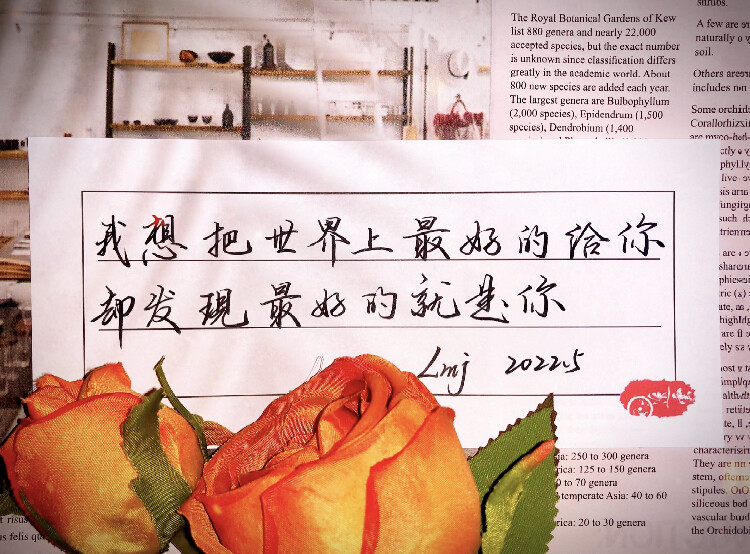 The Royal Botanical Gardens of Kew
list 880 genera and nearly 22,000
accepted species, but the exact number
is unknown since classification differs
greatly in the academic world. About
800 new species are added each year.
The largest genera are Bulbophyllum
(2,000 species), Epidendrum (1,500
species), Dendrobium (1,400
shrubs.
A few are
naturally
soil.
Others are
includes
Some orchid
Corallorhiz
are myco-het
我想把世界上最好的给你
却发现最好的就是你
Lmj 2022.5
ia: 250 to 300 genera
rica: 125 to 150 genera
0 to 70 genera
temperate Asia: 40 to 60
rica: 20 to 30 genera
characterisi
They are
stem,
stipules.
siliceous bod
vascular bund
the Orchidoi